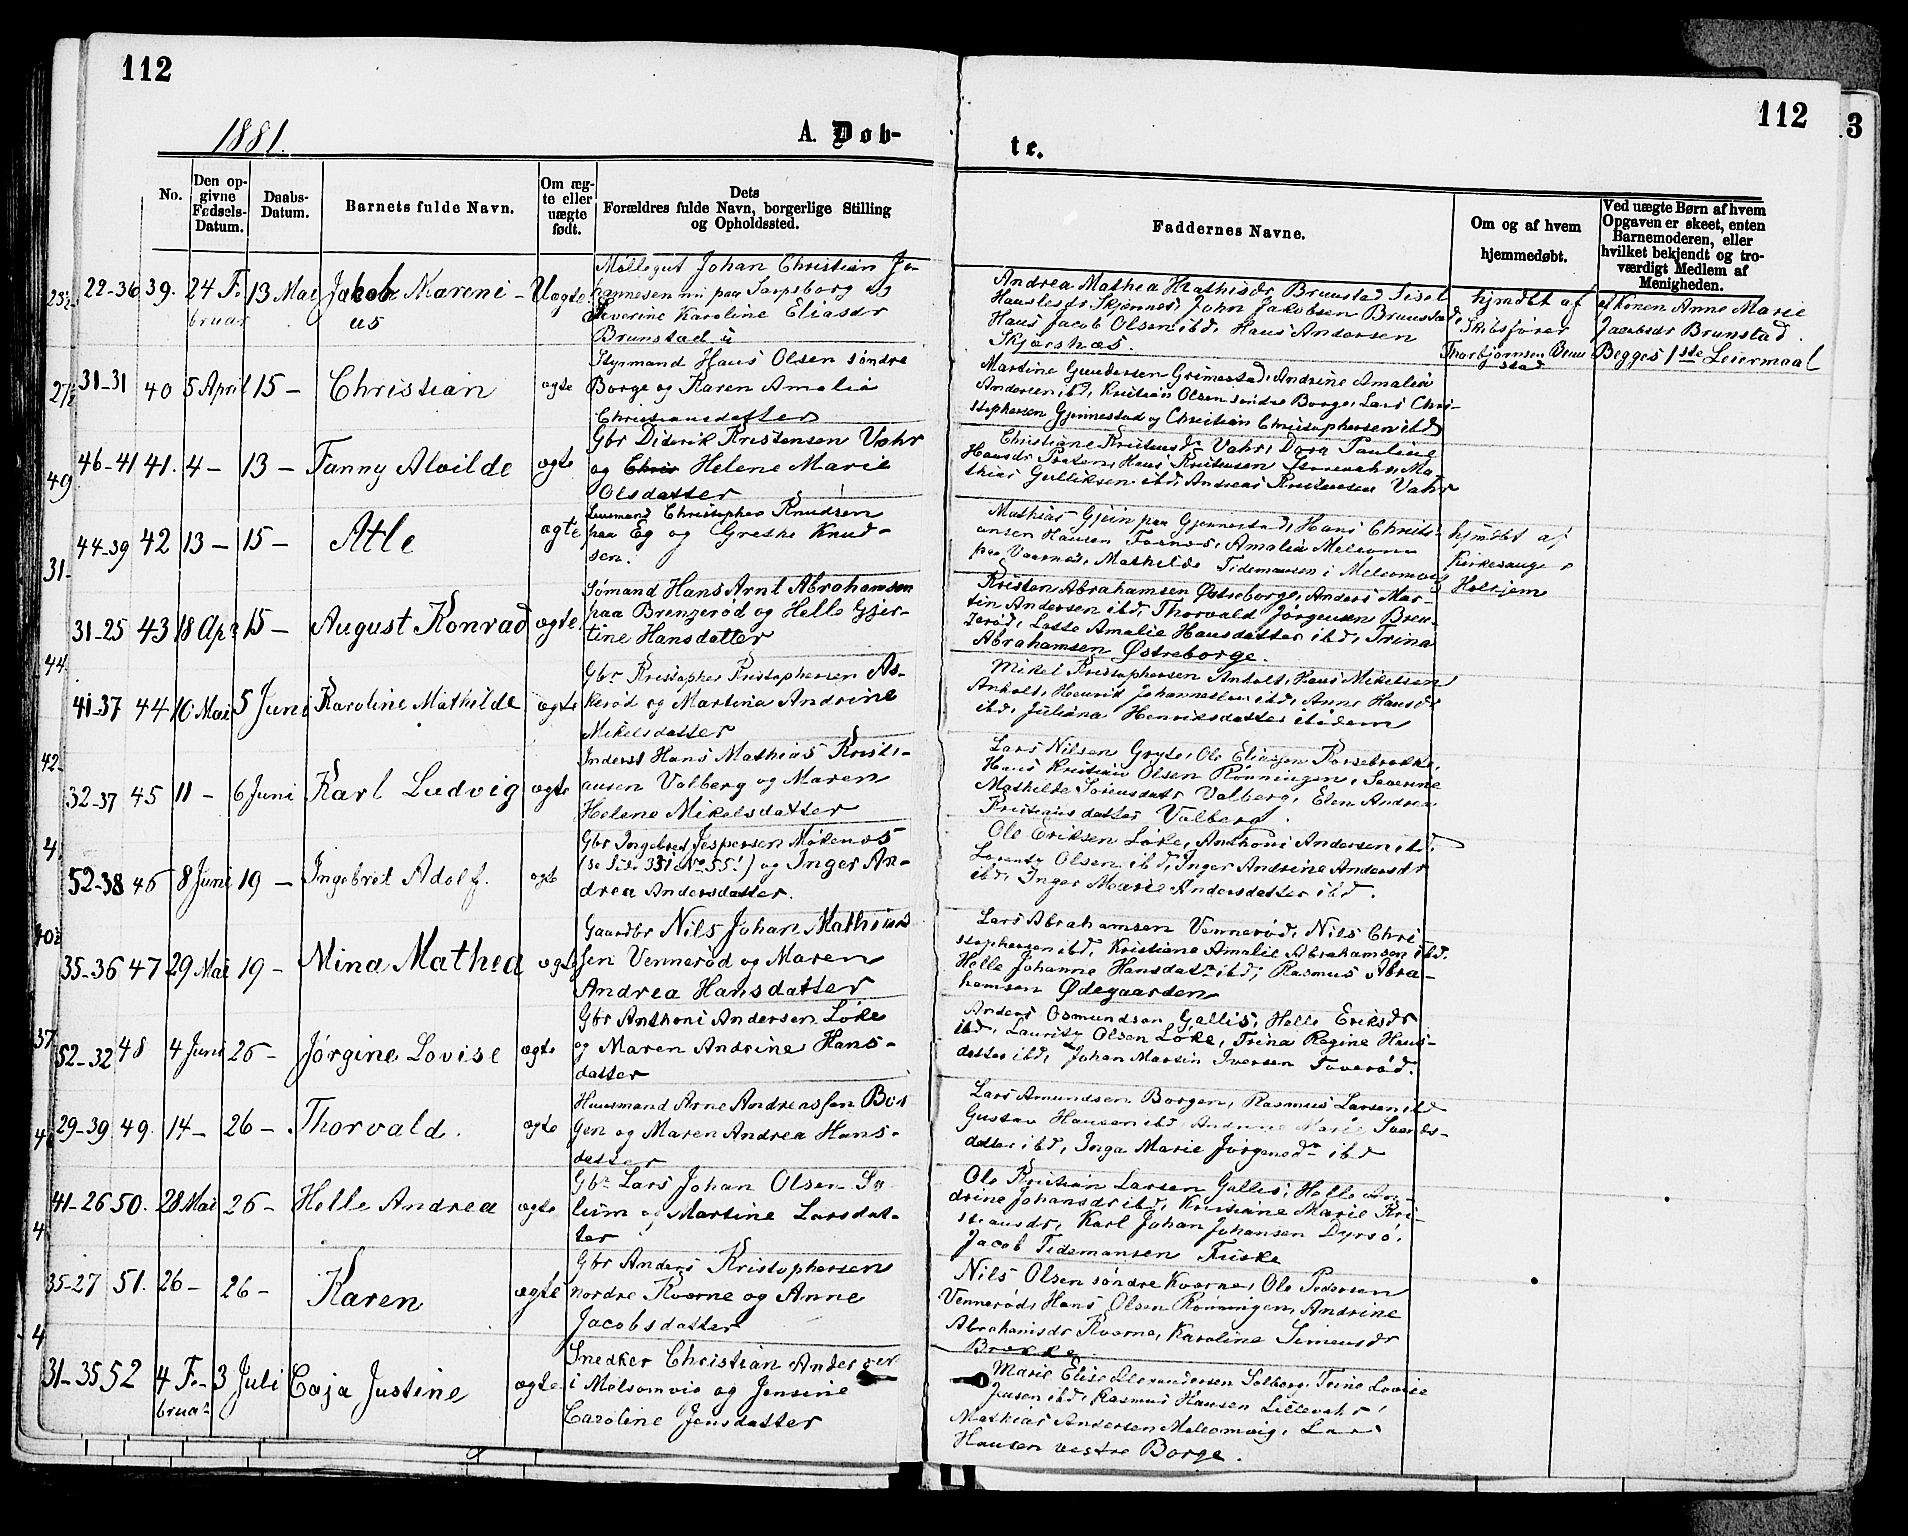 112
112
3
1881.
A. Døb-
te.
No.
Den op-
givne
Fødsels-
Datum.
Daabs-
Datum.
Barnets fulde Navn.
Om æg-
te eller
uægte
født.
Dets
Forældres fulde Navn, borgerlige Stilling
og Opholdssted.
Faddernes Navne.
Om og af hvem
hjemmedøbt.
Ved uægte Børn af hvem
Opgaven er skeet, enten
Barnemoderen, eller
hvilket bekjendt og tro-
værdigt Medlem af
Menigheden.
22-36 39. 24 Fe 13 Mai Jakob Mareni- Uægte
bruar us
Møllegut Johan Christian Jo-
hannesen nu paa Sarpsborg og
Severine Karoline Eliasdr
Brunstad
Andrea Mathea Mathisdr Brunstad
Skjønnes, John Jakobsen Brunstad,
Hans Jacob Olsen ibd, Hans Andersen
Skjærsnæs.
hjmdbt af
Skibsfører
Thorbjørnsen Brun
stad
af Konen Anne Marie
Jacobsdr Brunstad.
Begges 1ste Leiermaal
31-31 40 5 April 15 - Christian ægte
Styrmand Hans Olsen søndre
Borge og Karen Amalia
Christiansdatter
Martine Gundersen Grimestad, Andrine Amalia
Andersen ibd, Kristian Olsen søndre Borge, Lars Chri-
stophersen Gjennestad og Christian Christophersen ibd
49
46-41 41. 4 - 13 - Fanny Alvilde ægte
Gbr Diderik Kristensen Vahr
og Chris Helene Marie
Olsdatter
Christiane Kristensdr Vahr, Dora Pauline
Hansdr Hans Kristensen Ma
thias Gulliksen ibd, Andreas Kristensen Vahr
44-39 42 13 - 15 - Atle ægte
Lensmand Christopher Knudsen
paa Eg og Grethe Knud-
sen.
Mathias Gjein paa Gjennestad, Hans Christi-
ansen Hansen Amalia Melsom
paa Mathilde Tidemansen i Melsomvig
hjmdbt af
Kirkesanger
Holtjem
31-
31-25 43 18 Apr 15 - August Konrad ægte
Sømand Hans Arnt Abrahamsen
paa Brenzerød og Helle Gjer-
tine Hansdatter
Kristen Abrahamsen Østreborge, Anders Mar-
tin Andersen ibd, Thorvald Jørgensen Bren-
zerød, Amalie Hansdatter ibd, Trina
Abrahamsen Østreborge.
44.
41-37 44 10 Mai 5 Juni Karoline Mathilde ægte
Gbr Kristopher Kristophersen As-
kerød og Martina Andrine
Mikelsdatter
Mikel Kristophersen Anholt, Hans Mikelsen
Anholt, Henrik Johannesen ibd, Anne Hansdr
ibd, Juliana Henriksdatter ibidem
42-
32-37 45 11 - 6 Juni Karl Ludvig ægte
Inderst Hans Mathias Kristi-
ansen Valberg og Maren
Helene Mikelsdatter
Lars Nilsen Gryte, Ole Eliasen
Hans Kristian Olsen Rønningen, Severine
Mathilde Sørensdatr Valberg, Elen Andrea
Kristiansdatter Valberg.
4
52-38 46 8 Juni 19 - Ingebret Adolf. ægte
Gbr Ingebret Jespersen Mökenes
(se Side 331 No 55!) og Inger An-
drea Andersdatter.
Ole Eriksen Løke, Anthoni Andersen ibd,
Lorentz Olsen ibd, Inger Andrine Andersdr
ibd, Inger Marie Andersdatter ibd.
35-36 47 29 Mai 19 - Mina Mathea ægte
Gaardbr Nils Johan Mathias
sen Vennerød og Maren
Andrea Hansdatter
Lars Abrahamsen Vennerød, Nils Chri
stophersen ibd, Kristiane Amalie Abrahamsen ibd.
Helle Johanne Hansdatr ibd, Rasmus Abra-
hamsen Ødegaarden
37
52-32 48 4 Juni 26 - Jørgine Lovise ægte
Gbr Anthoni Andersen Løke
og Maren Andrine Hans-
datter
Anders Osmundsen Gallis, Helle Eriksdr
ibd, Lauritz Olsen Løke, Trina Regine Hans-
datter ibd, Johan Martin Iversen Toverød.
4
29-39 49. 14 - 26 - Thorvald. ægte
Huusmand Arne Andreassen Bor
gen og Maren Andrea Hans-
datter
Lars Amundsen Borgen, Rasmus Larsen ibd
Gustav Hansen ibd, Andrine Marie
datter ibd, Inga Marie Jørgensdr ibd
41-26 50. 28 Mai 26 - Helle Andrea ægte
Gbr Lars Johan Olsen So
lum og Martine Larsdat-
ter
Ole Kristian Larsen Gallis, Helle An-
drine Johansdr ibd, Kristiane Marie Kri-
stiansdr, Karl Johan Johansen Dyrsø,
Jacob Tidemansen Fuske
4
35-27 51. 26 - 26 - Karen ægte
Gbr Anders Kristophersen
nordre Kværne og Anne
Jacobsdatter
Nils Olsen søndre Kværne, Ole Pedersen
Vennerød, Hans Olsen Rønningen, Andrine
Abrahamsdr Kværne, Karoline Simensdr
Brekke.
4
31-35 52 4 Fe- 3 Juli Caja Justine ægte
bruar
Snedker Christian Andersen
i Melsomvig og Jensine
Caroline Jensdatter
Marie Elise Alexandersen Solberg, Trine Lovise
Jensen ibd, Rasmus Hansen Lillevahr,
Mathias Andersen Melsomvig, Lars
Hansen vestre Borge.